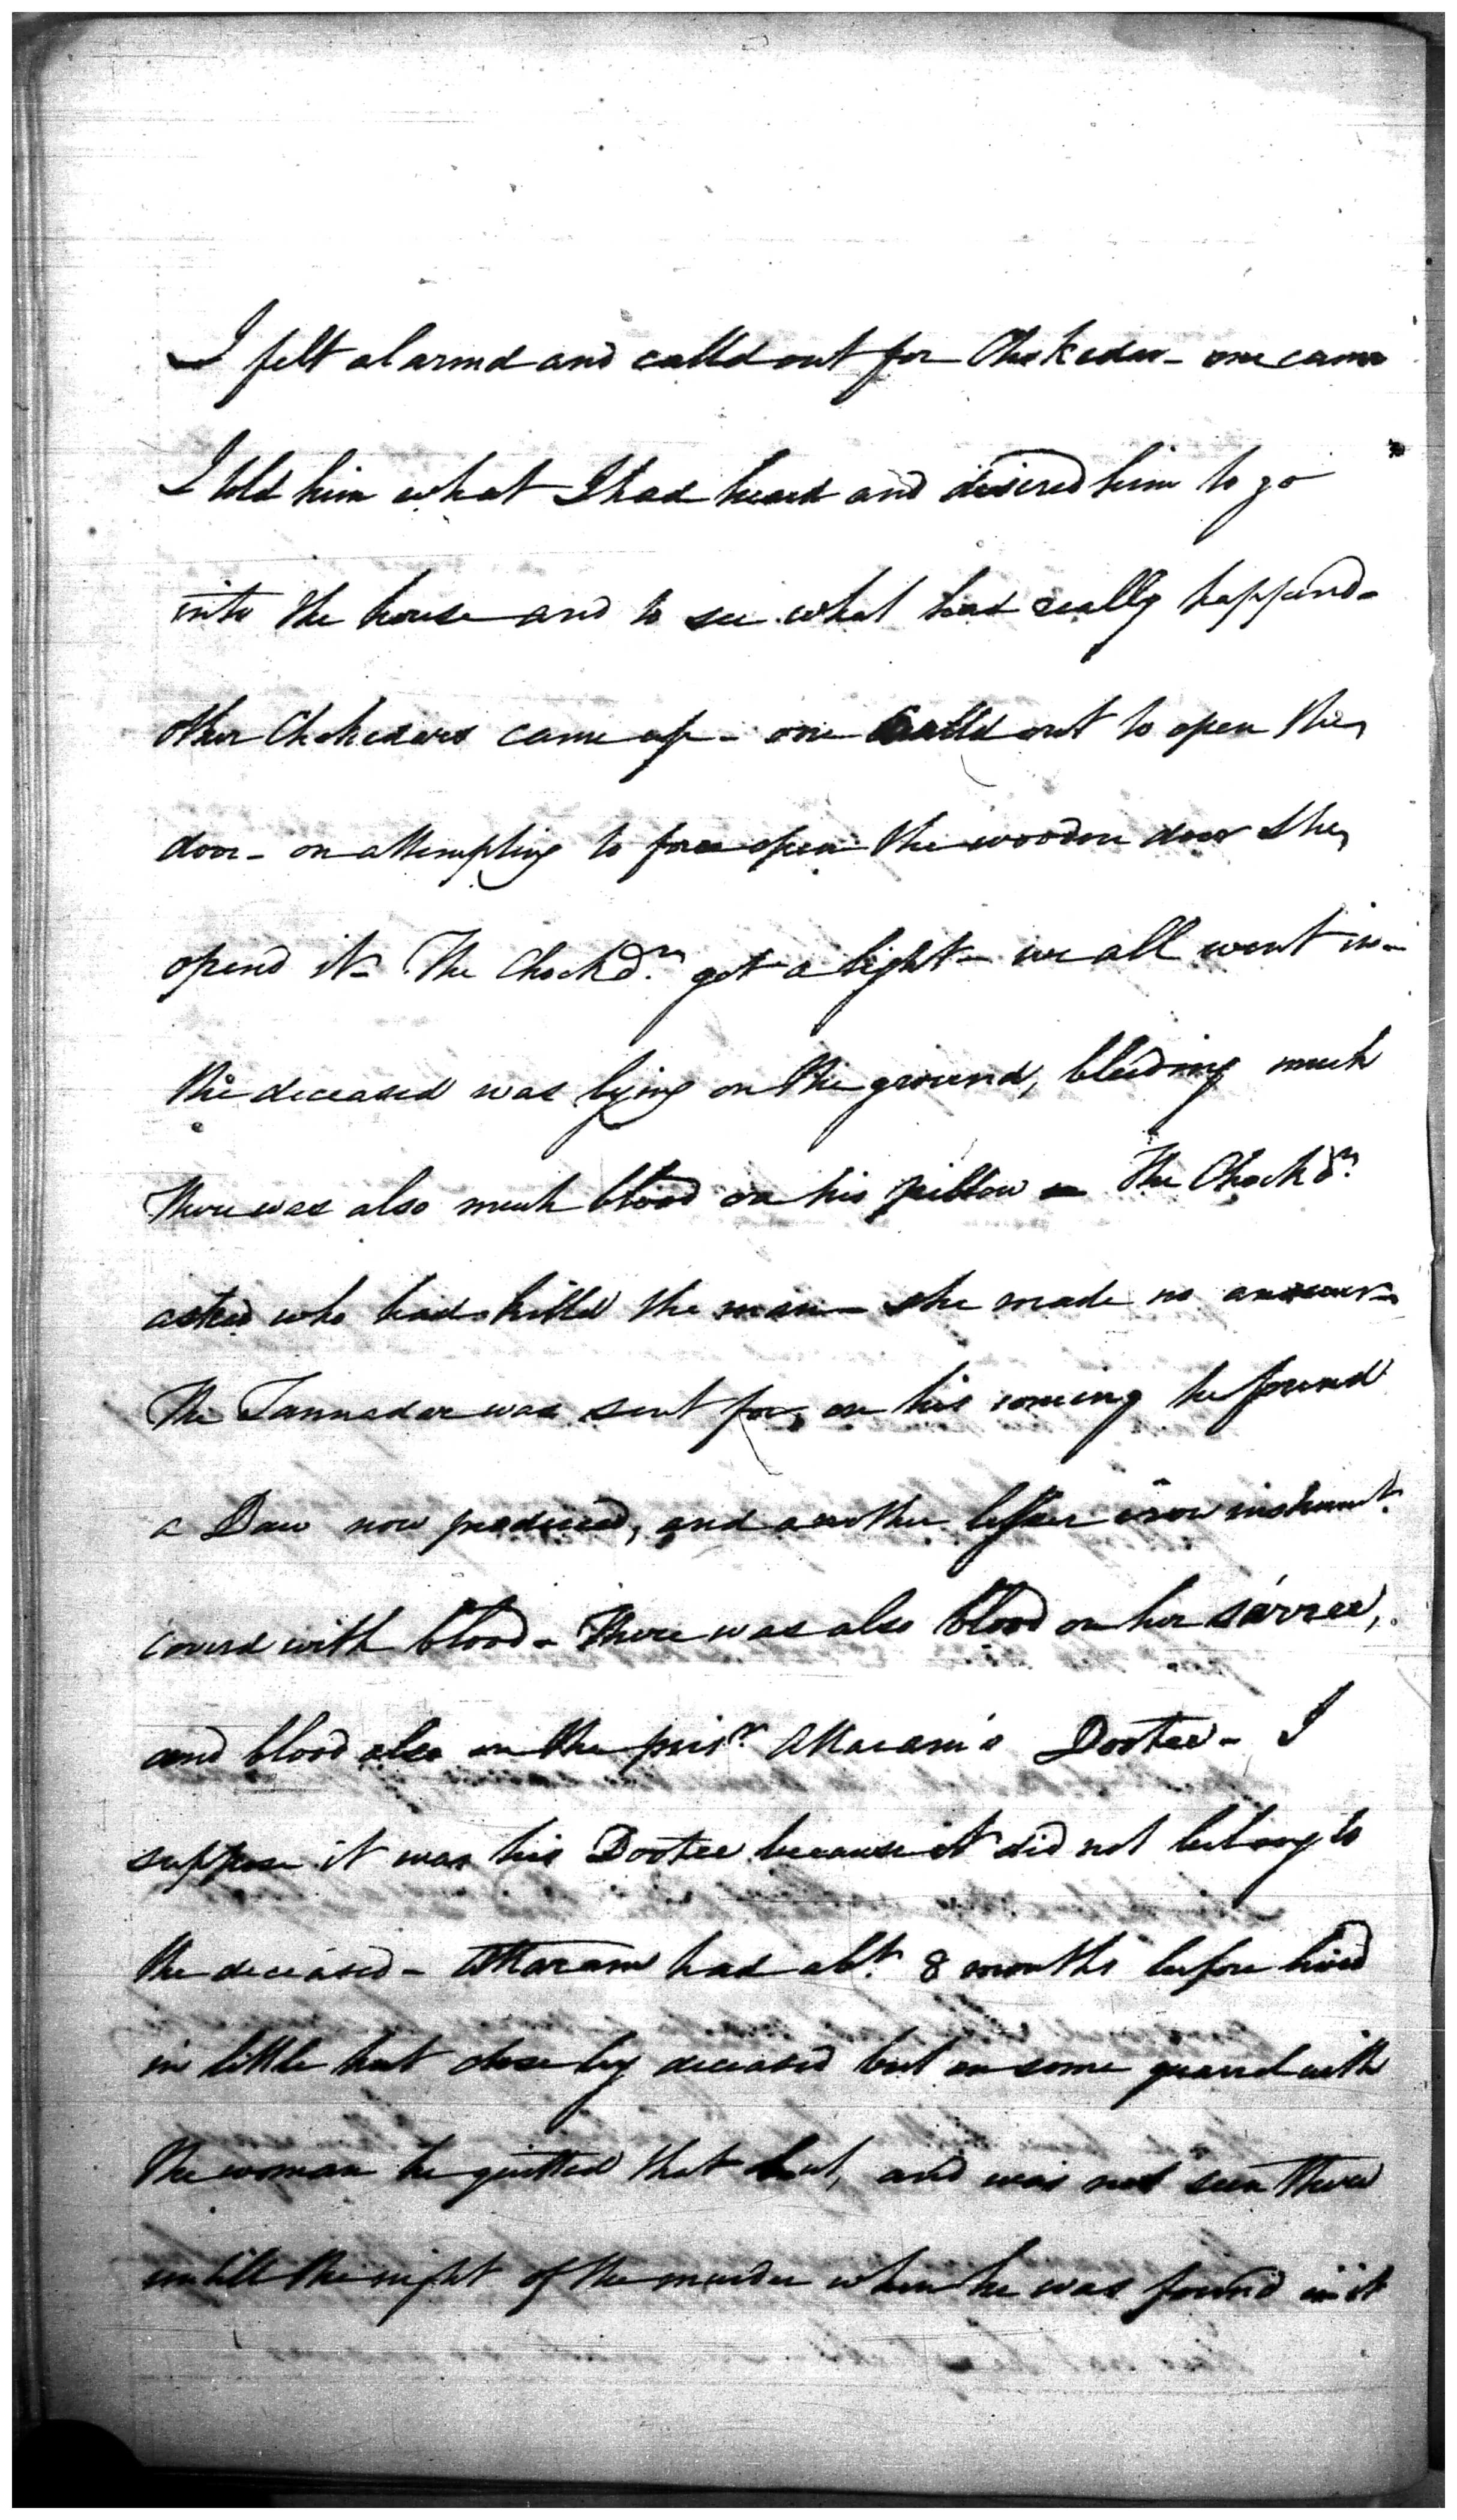 I felt alarmd and calld out for Chokedar - one came
I told him what I had heard and desired him to go
into the house and to see what had really happend -
other Chokedars came up - one calld out to open the
door - on attempting to force open the wooden door she
opend it - The Chockdr. got a light - we all went in -
the deceased was lying on the ground, bleeding much
there was also much blood on his pillow - The Chockdr.
asked who had killd the man - she made no answer -
The Tannadar was sent for, on his coming he found
a Daw now produced, and another lesser iron instrumt.
coverd with blood - There was also blood on her sarree,
and blood also on the prisr. Attaram's Dootee - I
suppose it was his Dootee because it did not belong to
the deceased - Attaram had abt. 8 months before lived
in little hut close by deceased but on some quarrel with
the woman he quitted that hut, and was not seen there
untill the night of the murder when he was found in it